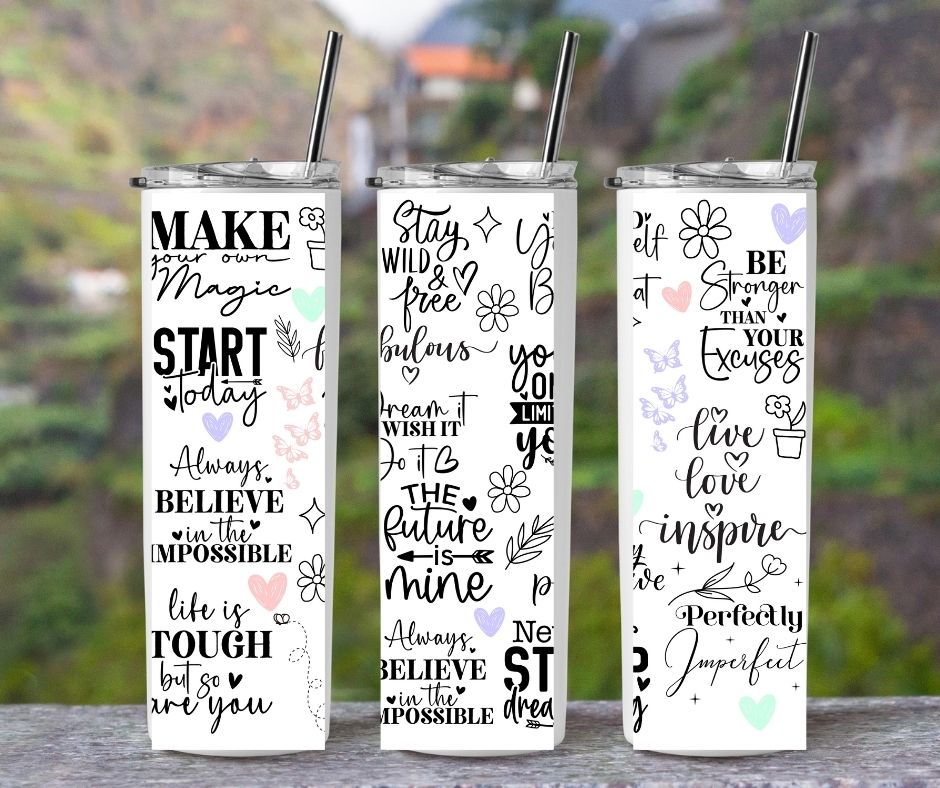 MAKE
your own
Magic
START
Today
Always
BELIEVE
in the
IMPOSSIBLE
life is
TOUGH
but so
are you
Stay
WILD
&
free
bulous
Dream it
WISH IT
Do it
THE
future
is
mine
Always
BELIEVE
in the
IMPOSSIBLE
yo
ON
LIMI
yo
Ne
ST
drea
elf
at
BE
Stronger
THAN
YOUR
Excuses
live
love
inspire
Perfectly
Imperfect